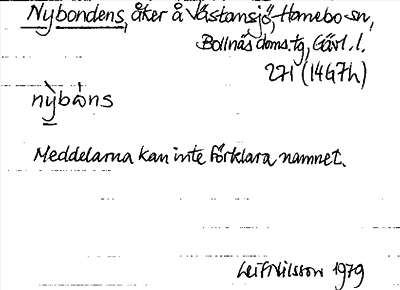 Nybondens, åker å Västansjö, Hanebo sn,
Bollnäs doms.tg, Gävl. l.
271 (14G7h)
nỳbàns
Meddelarna kan inte förklara namnet.
Leif Nilsson 1979